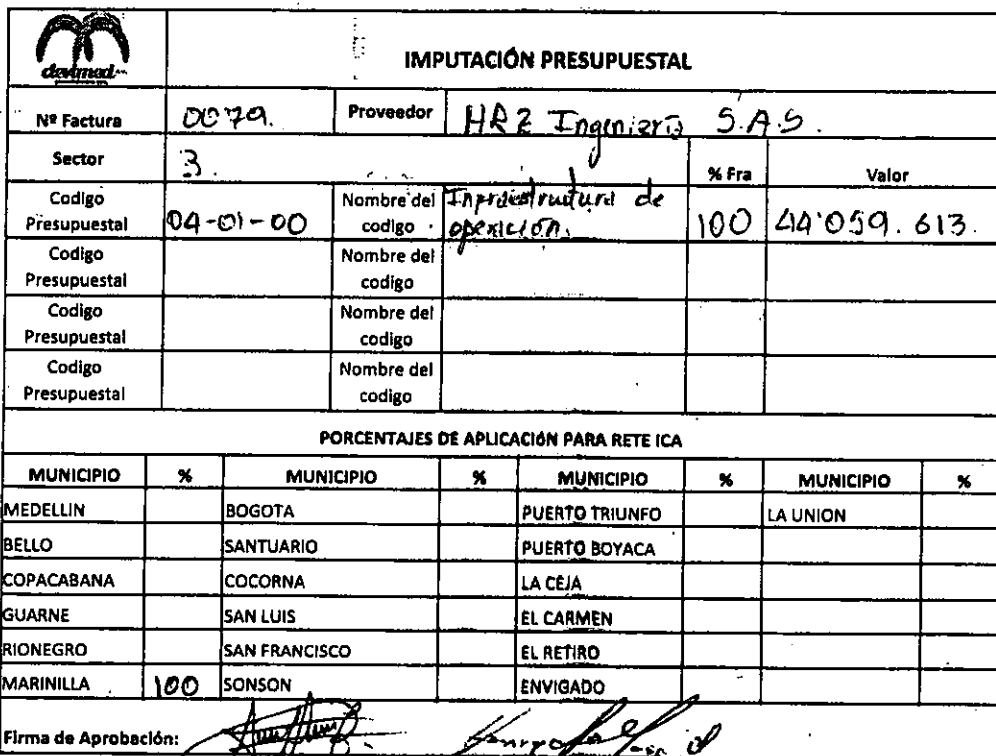 devimed
IMPUTACIÓN PRESUPUESTAL
Nº Factura 0079. Proveedor HRZ Ingeniería S.A.S.
Sector 3. % Fra Valor
Codigo Presupuestal 04-01-00 Nombre del codigo Infraestructura de operación. 100 44'059.613.
Codigo Presupuestal Nombre del codigo
Codigo Presupuestal Nombre del codigo
Codigo Presupuestal Nombre del codigo
PORCENTAJES DE APLICACIÓN PARA RETE ICA
MUNICIPIO % MUNICIPIO % MUNICIPIO % MUNICIPIO %
MEDELLIN BOGOTA PUERTO TRIUNFO LA UNION
BELLO SANTUARIO PUERTO BOYACA
COPACABANA COCORNA LA CEJA
GUARNE SAN LUIS EL CARMEN
RIONEGRO SAN FRANCISCO EL RETIRO
MARINILLA 100 SONSON ENVIGADO
Firma de Aprobación: